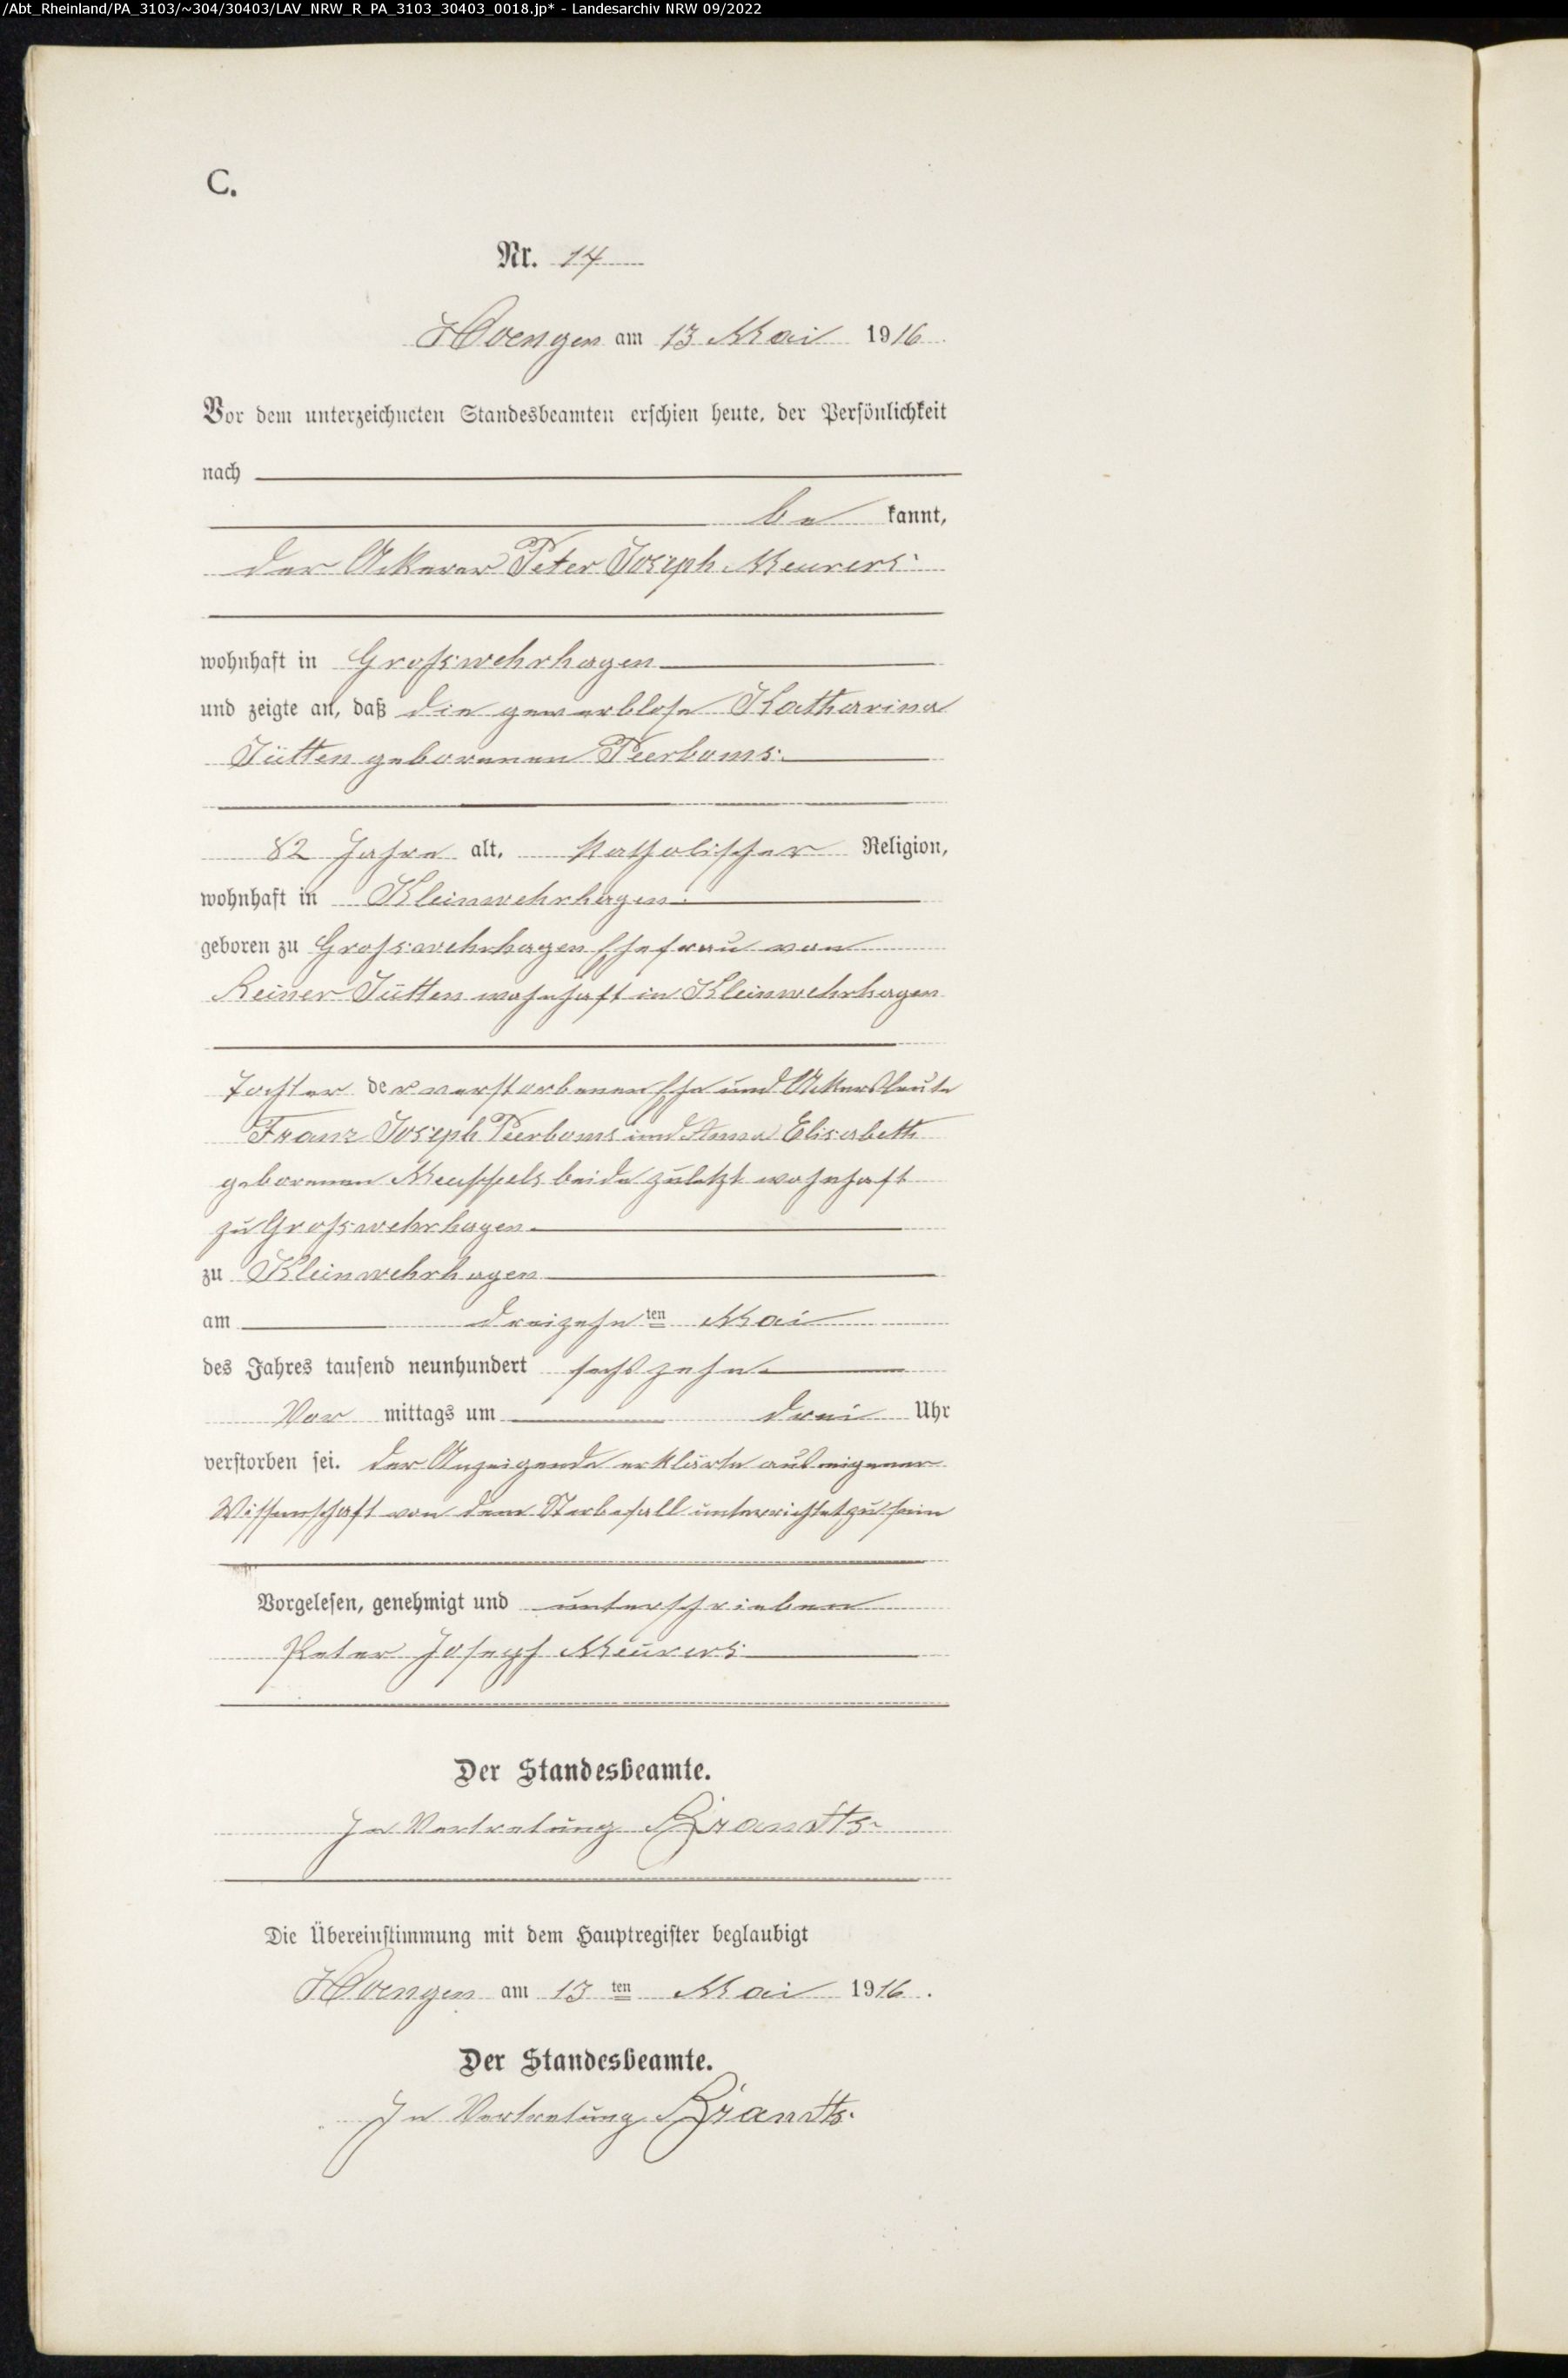 /Abt_Rheinland/PA_3103/~304/30403/LAV_NRW_R_PA_3103_30403_0018.jp* - Landesarchiv NRW 09/2022
C.
Nr. 14
Hoengen am 13 Mai 1916.
Vor dem unterzeichneten Standesbeamten erschien heute, der Persönlichkeit
nach
be kannt,
der Ackerer Peter Joseph Meurers
wohnhaft in Grosswehrhagen
und zeigte an, daß die gewerblose Katharina
Jütten geborenen Peerboms
82 Jahre alt, katholischer Religion,
wohnhaft in Kleinwehrhagen
geboren zu Grosswehrhagen Ehefrau von
Reiner Jütten wohnhaft in Kleinwehrhagen
Tochter der verstorbenen Ehe und Ackersleute
Franz Joseph Peerboms und Anna Elisabeth
geborenen beide zuletzt wohnhaft
zu Grosswehrhagen
zu Kleinwehrhagen
am dreizehnten Mai
des Jahres tausend neunhundert sechszehn
Vor mittags um drei Uhr
verstorben sei. Der Anzeigende erklärte aus eigener
Wissenschaft von dem Sterbefall unterrichtet zu sein
Vorgelesen, genehmigt und unterschrieben
Peter Joseph Meurers
Der Standesbeamte.
In Vertretung Brandts
Die Übereinstimmung mit dem Hauptregister beglaubigt
Hoengen am 13 ten Mai 1916.
Der Standesbeamte.
In Vertretung Brandts